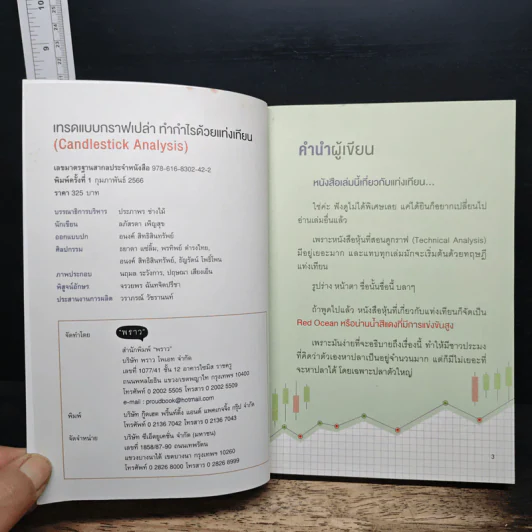 เทรดแบบกราฟเปล่า ทำกำไรด้วยแท่งเทียน
(Candlestick Analysis)
เลขมาตรฐานสากลประจำหนังสือ 978-616-8302-42-2
พิมพ์ครั้งที่ 1 กุมภาพันธ์ 2566
ราคา 325 บาท
บรรณาธิการบริหาร ประภาพร ช่างไม้
นักเขียน ผกัสรดา เพ็ญสุข
ออกแบบปก อนงค์ สิทธิสินทรัพย์
ศิลปกรรม พรทิพย์ ดำรงไทย,
อนงค์ สิทธิสินทรัพย์, ธัญรัตน์ โพธิ์ไพน
ภาพประกอบ นฤมล ระวังการ, ปฤษณา เสียงเย็น
พิสูจน์อักษร จรวยพร ฉันทจิตปรีชา
ประสานงานการผลิต วราภรณ์ วัชรานนท์
จัดทำโดย "พราว"
สำนักพิมพ์ "พราว"
บริษัท พราว โพเอท จำกัด
เลขที่ 1077/41 ชั้น 12 อาคารไซมีส ราชครู
ถนนพหลโยธิน แขวงเขตพญาไท กรุงเทพฯ 10400
โทรศัพท์ 0 2002 5505 โทรสาร 0 2002 5509
e-mail : proudbook@hotmail.com
พิมพ์ บริษัท กู๊ดเฮด พริ้นท์ติ้ง แอนด์ แพคเกจจิ้ง กรุ๊ป จำกัด
โทรศัพท์ 0 2136 7042 โทรสาร 0 2136 7043
จัดจำหน่าย บริษัท ซีเอ็ดยูเคชั่น จำกัด (มหาชน)
เลขที่ 1858/87-90 ถนนเทพรัตน
แขวงบางนาใต้ เขตบางนา กรุงเทพฯ 10260
โทรศัพท์ 0 2826 8000 โทรสาร 0 2826 8999
คำนำผู้เขียน
หนังสือเล่มนี้เกี่ยวกับแท่งเทียน...
ใช่ค่ะ ฟังดูไม่ได้พิเศษเลย แค่ได้ยินก็อยากเปลี่ยนไป
อ่านเล่มอื่นแล้ว
เพราะหนังสือหุ้นที่สอนดูกราฟ (Technical Analysis)
มีอยู่เยอะมาก และแทบทุกเล่มมักจะเริ่มต้นด้วยทฤษฎี
แท่งเทียน
รูปร่าง หน้าตา ชื่อนั้นชื่อนี้ บลาๆ
ถ้าพูดไปแล้ว หนังสือหุ้นที่เกี่ยวกับแท่งเทียนก็จัดเป็น
Red Ocean หรือน่านน้ำสีแดงที่มีการแข่งขันสูง
เพราะมันง่ายที่จะอธิบายถึงเรื่องนี้ ทำให้มีชาวประมง
ที่คิดว่าตัวเองหาปลาเป็นอยู่จำนวนมาก แต่ก็มีไม่เยอะที่
จะหาปลาได้ โดยเฉพาะปลาตัวใหญ่
3
9